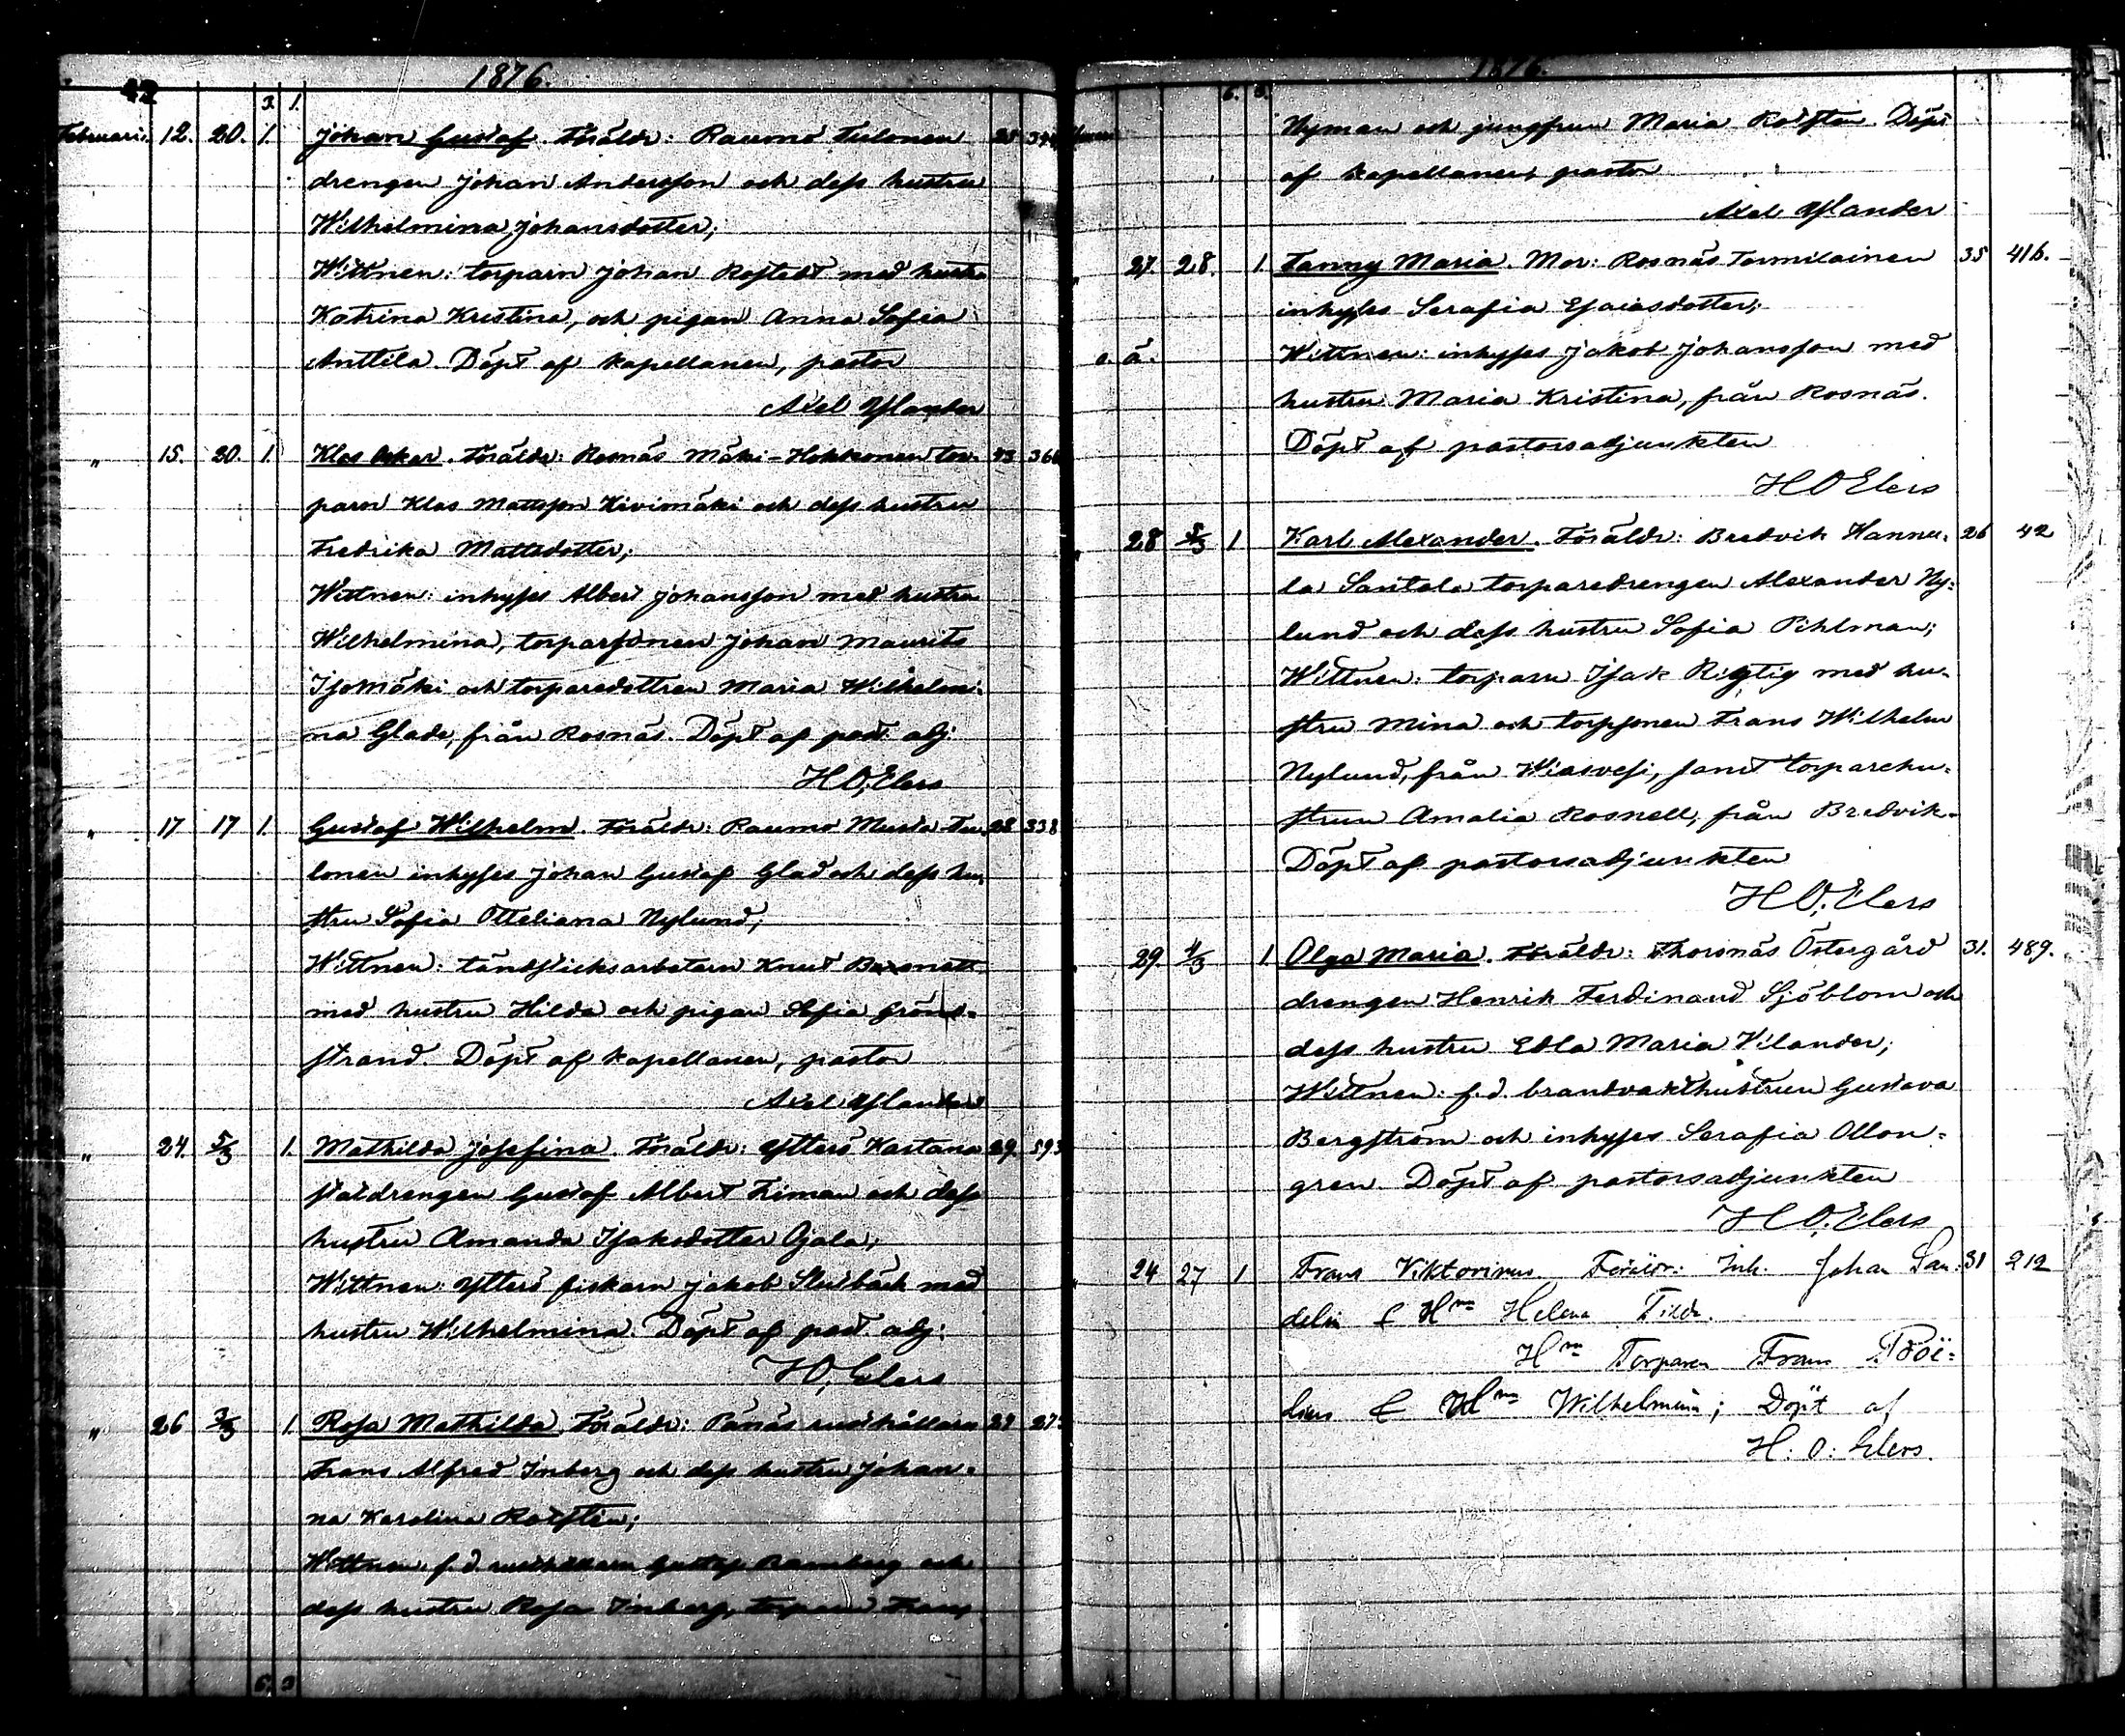 1876.
42
3. 1.
Februari. 12. 20. 1. Johan Gustaf. Föräldr: Raumo Tulonen 28
drengen Johan Andersson och dess hustru
Wilhelmina Johansdotter;
Wittnen: torparn Johan Rostedt med hustru
Katrina Kristina, och pigan Anna Sofia
Anttila. Döpt af kapellanen, pastor
Axel Ylander
" 15. 20. 1. Klas Oskar. Föräldr: Rosnäs Mäki-Hokkonen tor-
parn Klas Mattsson Kivimäki och dess hustru
Fredrika Mattsdotter;
Wittnen: inhyses Albert Johansson med hustru
Wilhelmina, torparsonen Johan Maurits
Isomäki och torparedottren Maria Wilhelmi-
na Glade, från Rosnäs. Döpt af past. adj:
H O; Elers
" 17 17 1. Gustaf Wilhelm. Föräldr: Raumo Musta Tu- 28 338
lonen inhyses Johan Gustaf Glad och dess hu-
stru Sofia Otteliana Nylund;
Wittnen: tändsticksarbetarn Knut
med hustru Hilda och pigan Sofia Grönd-
strand. Döpt af kapellanen, pastor
Axel Ylander
" 24. 5/3 1. Mathilda Josefina. Föräldr: Ytterö Kartano 29. 593
statdrengen Gustaf Albert Friman och dess
hustru Amanda Isaksdotter Ojala;
Wittnen: Ytterö fiskarn Jakob med
hustru Wilhelmina. Döpt af past. adj:
H O; Elers
" 26 3/3 1. Rosa Mathilda. Föräldr: Pänäs rusthållarn 29 273
Frans Alfred Inberg och dess hustru Johan-
na Karolina Rodsten;
Wittnen: f.d. rusthållarn Gustaf Ramberg och
dess hustru Rosa Inberg, torparn Frans
6. 3
1876.
6. 3.
Nyman och jungfrun Maria Rodsten. Döpt
af kapellanen, pastor
Axel Ylander
" 27. 28. 1. Fanny Maria. Mor: Rosnäs Tommilainen 35 416.
inhyses Serafia Esaiasdotter;
o. ä. Wittnen: inhyses Jakob Johansson med
hustru Maria Kristina, från Rosnäs.
Döpt af pastorsadjunkten
H O Elers
" 28 5/3 1 Karl Alexander. Föräldr: Bredvik Hannu- 26 42
la Santala torparedrengen Alexander Ny-
lund och dess hustru Sofia Pihlman;
Wittnen: torparn Isak Rigtig med hu-
stru Mina och torpsonen Frans Wilhelm
Nylund, från Wiasvesi, samt torparehu-
strun Amalia Rosnell, från Bredvik.
Döpt af pastorsadjunkten
H O; Elers
29. 4/3 1. Olga Maria. Föräldr: Thorsnäs Östergård 31. 489.
drengen Henrik Ferdinand Sjöblom och
dess hustru Edla Maria Vilander;
Wittnen: f.d. brandvakthustrun Gustava
Bergström och inhyses Serafia Ollon-
gren. Döpt af pastorsadjunkten
H O; Elers
" 24 27 1 Frans Viktorinus. Föräldr: Inh. Johan San- 31 212
delin & Hu Helena Tilda.
Torparen Frans
& Hu Wilhelmina; Döpt af
H: O: Elers.